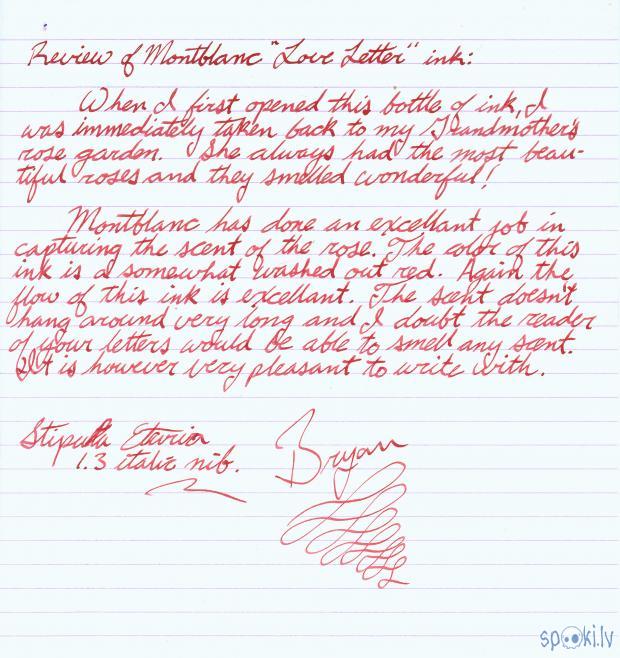 Review of Montblanc "Love Letter" ink:
When I first opened this bottle of ink, I
was immediately taken back to my Grandmother's
rose garden. She always had the most beau-
tiful roses and they smelled wonderful!
Montblanc has done an excellant job in
capturing the scent of the rose. The color of this
ink is a somewhat washed out red. Again the
flow of this ink is excellant. The scent doesn't
hang around very long and I doubt the reader
of your letters would be able to smell any scent.
It is however very pleasant to write with.
Stipula Etevria
1.3 italic nib.
Bryan
spoki.lv